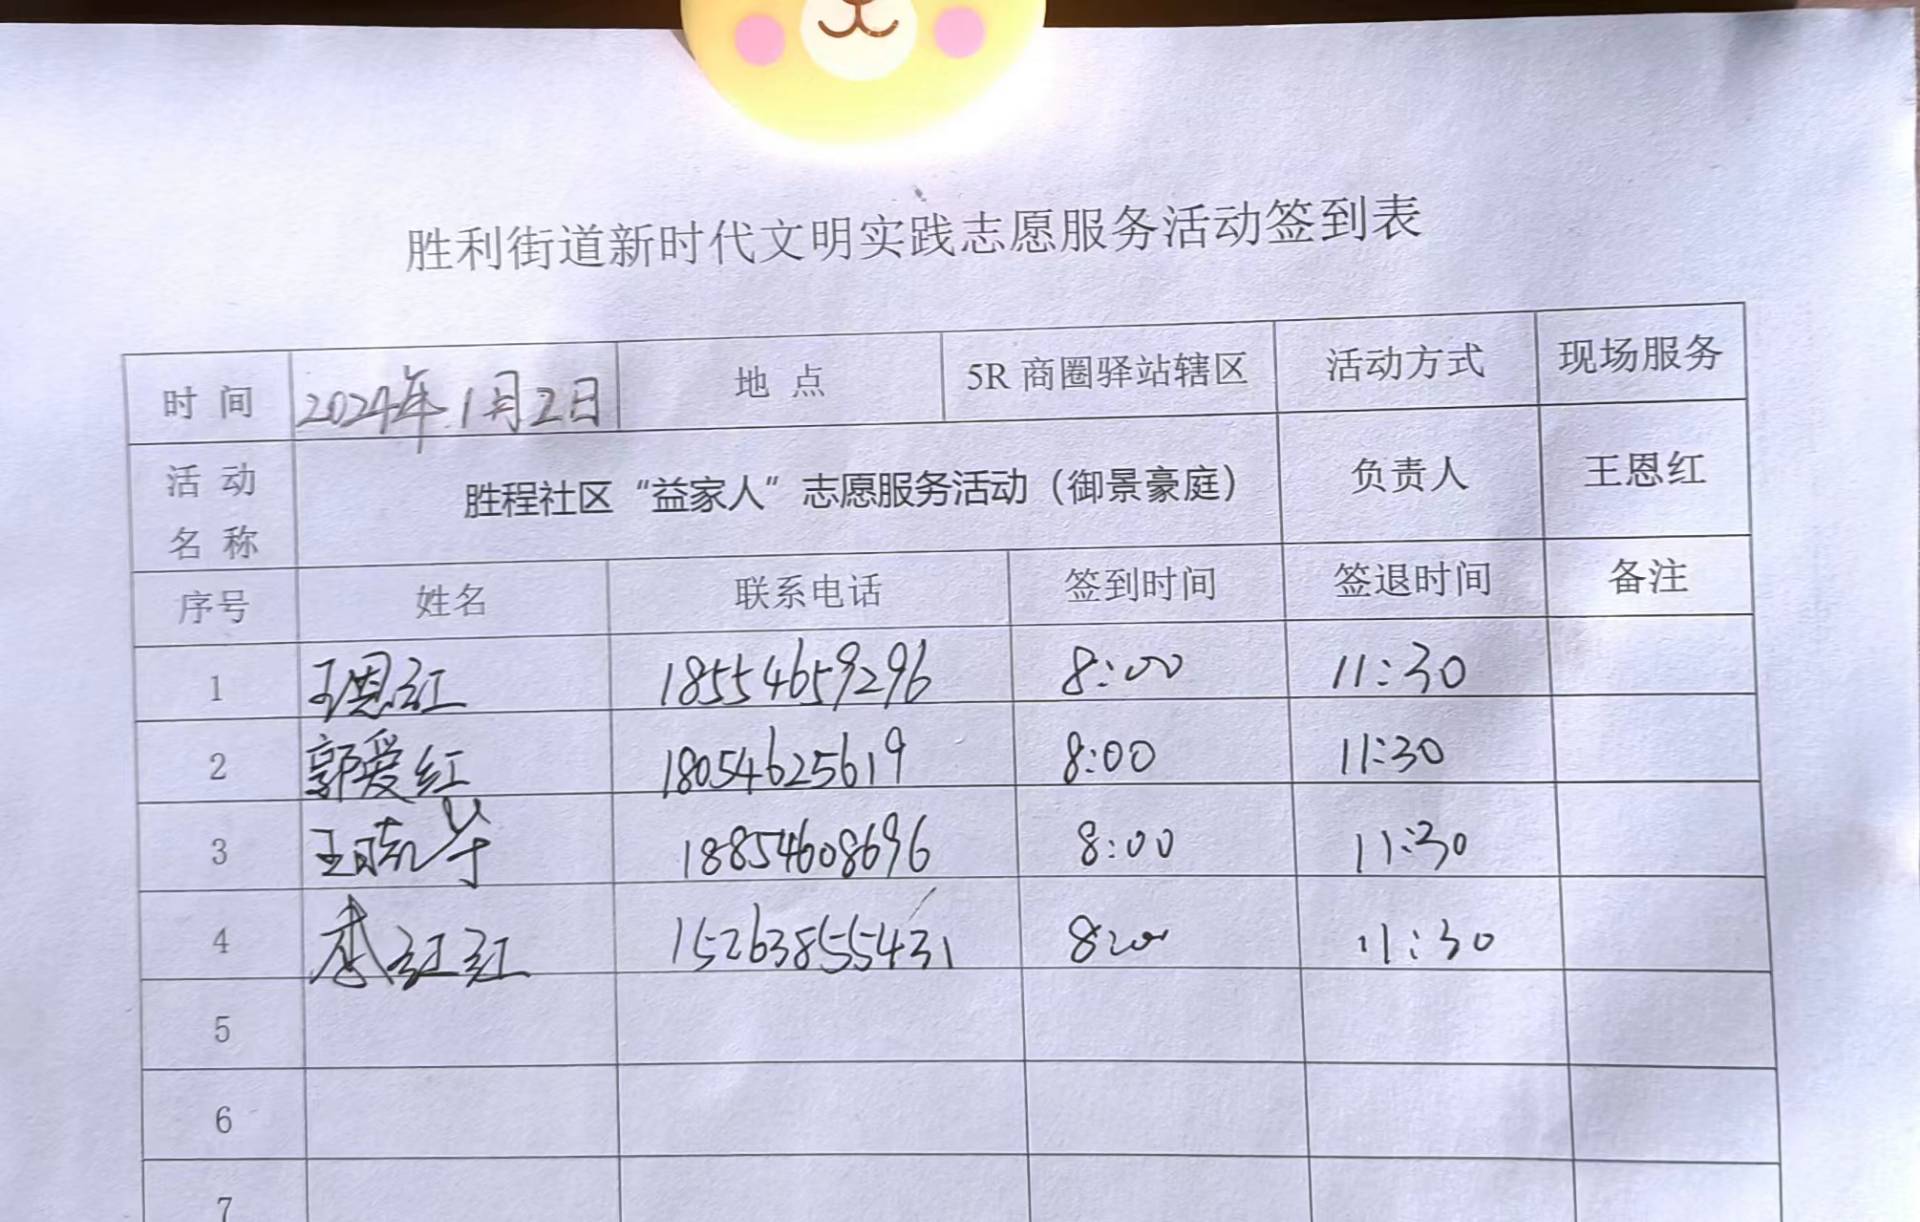 胜利街道新时代文明实践志愿服务活动签到表
时 间 2024年1月2日 地 点 5R商圈驿站辖区 活动方式 现场服务
活 动
名 称 胜程社区“益家人”志愿服务活动（御景豪庭） 负责人 王恩红
序号 姓名 联系电话 签到时间 签退时间 备注
1 王恩红 18554659296 8:00 11:30
2 郭爱红 18054625619 8:00 11:30
3 王晓芳 18854608696 8:00 11:30
4 李红红 15263855431 8:00 11:30
5
6
7